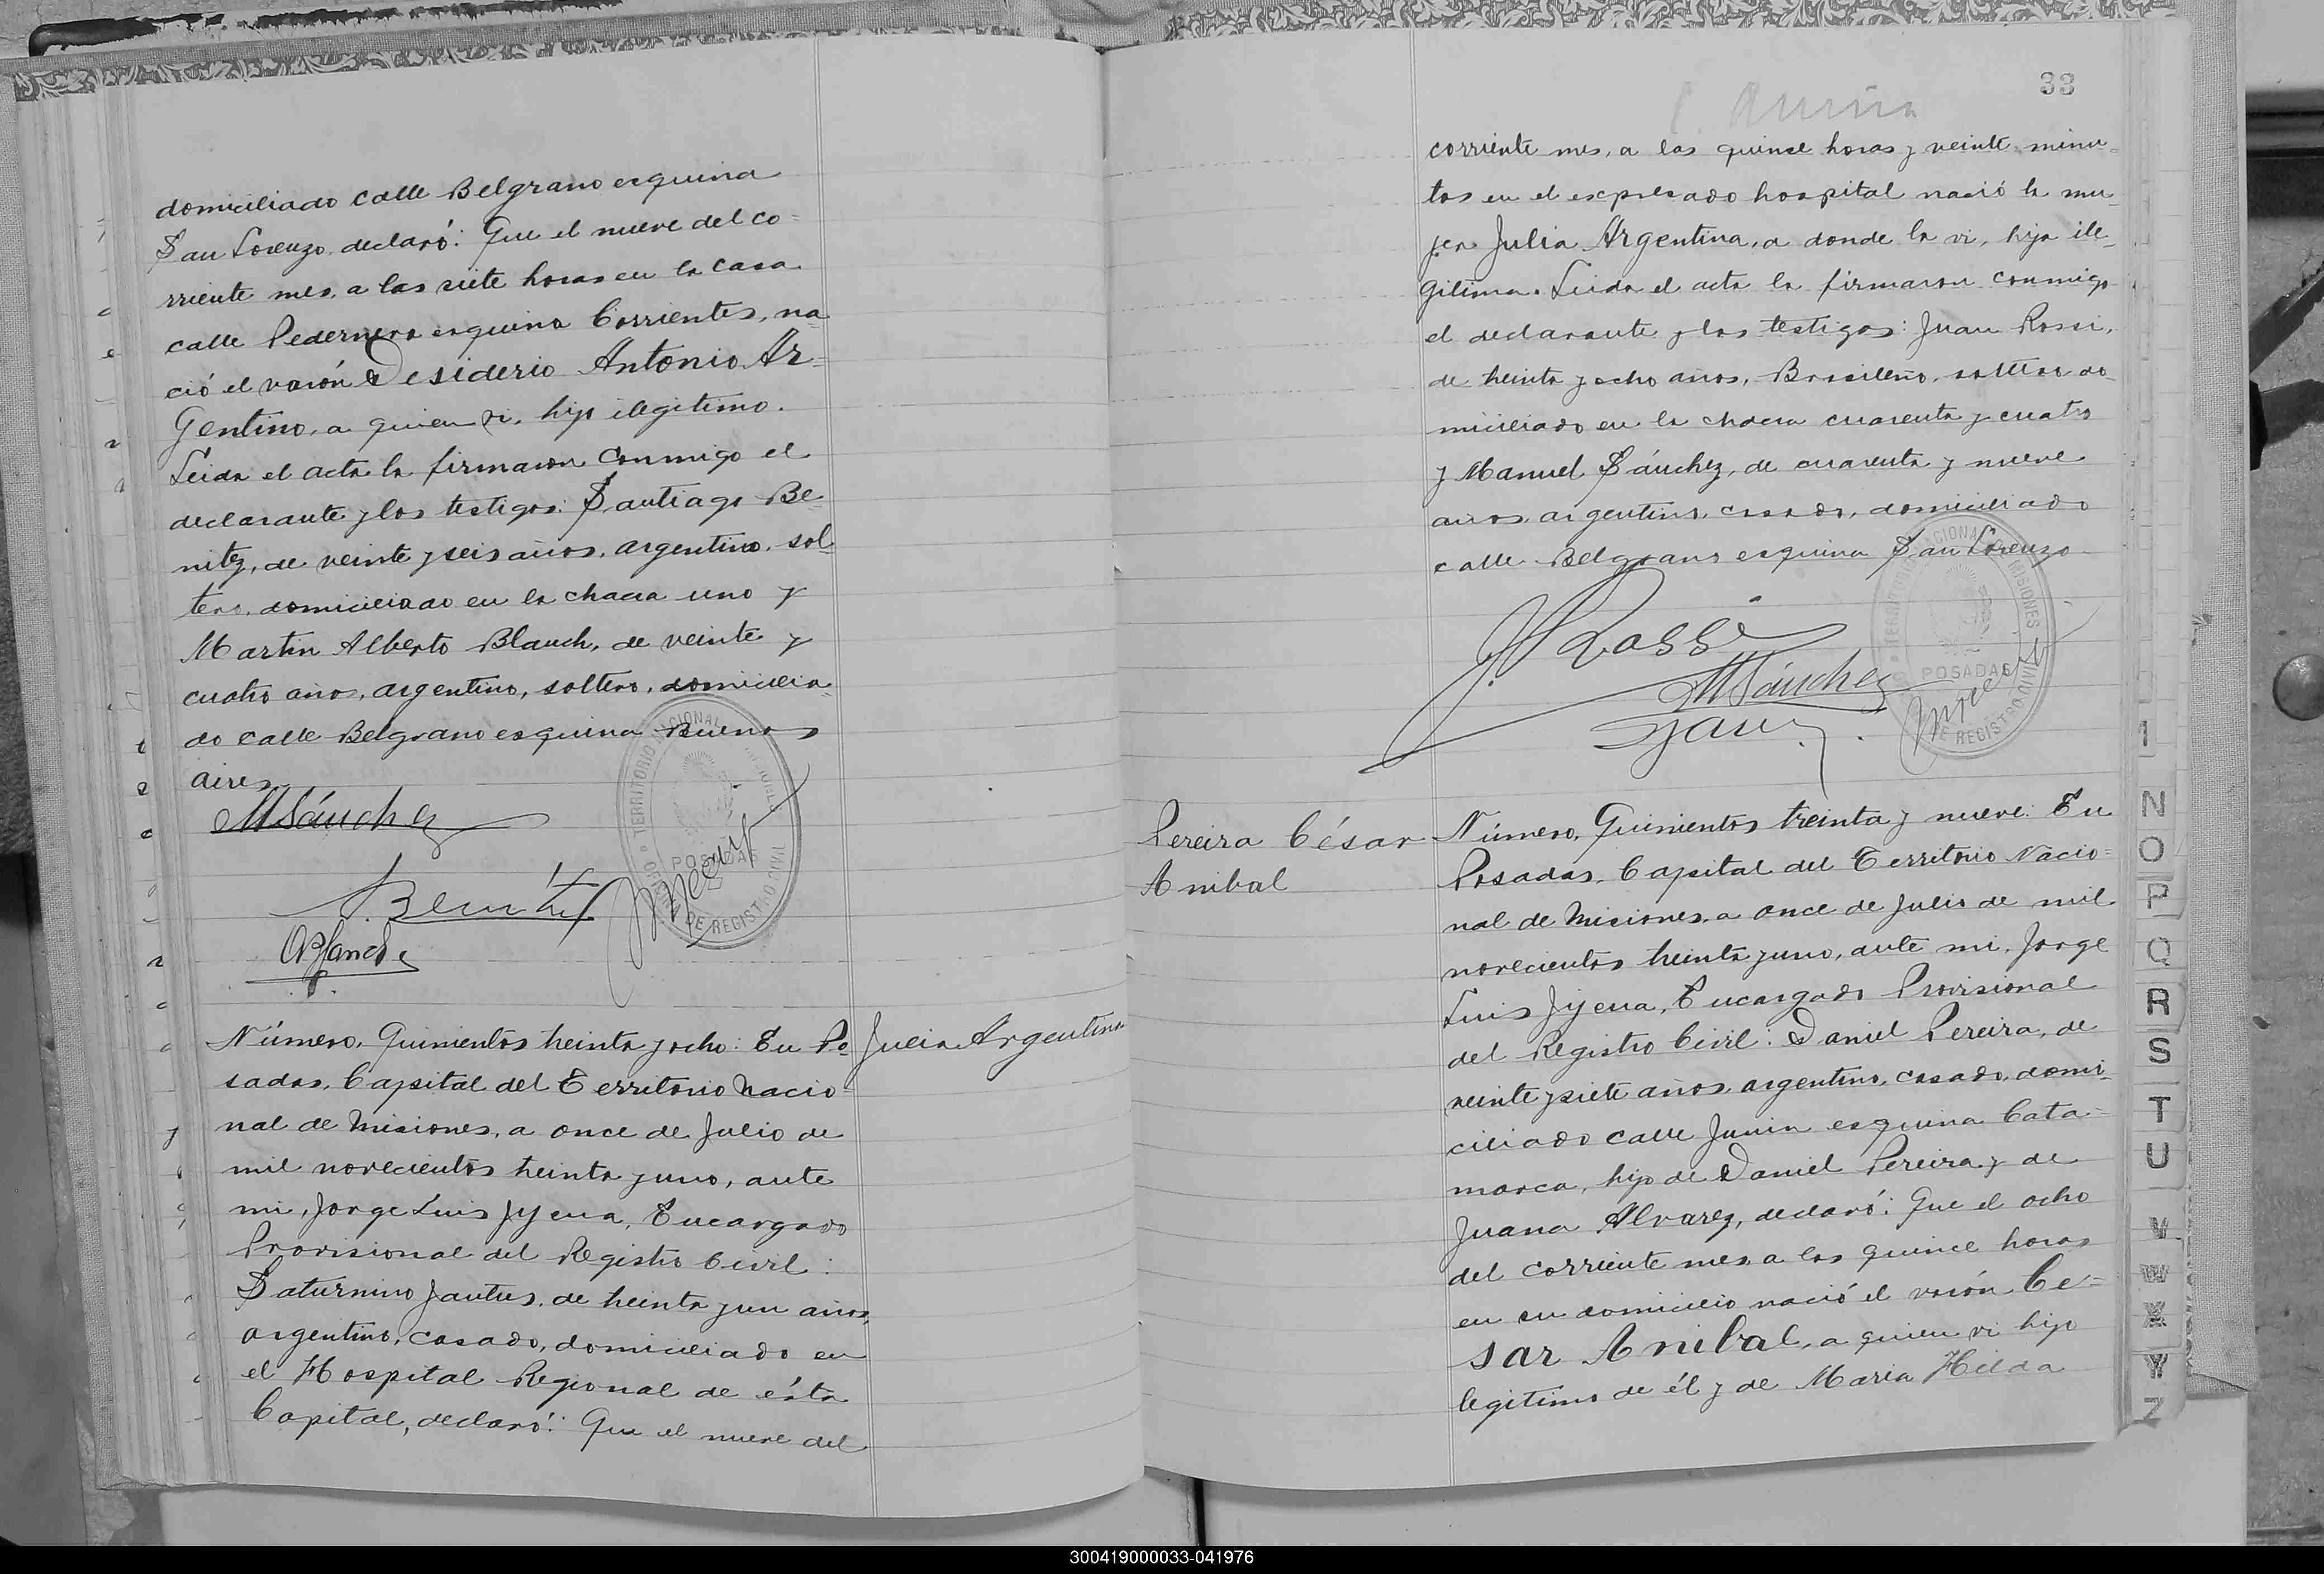 domiciliado calle Belgrano esquina
San Lorenzo, declaró: Que el nueve del co=
rriente mes, a las siete horas en la casa
calle Pedernera esquina Corrientes, na
ció el varón Desiderio Antonio Ar=
Gentino, a quien vi, hijo ilegitimo.
Leida el acta la firmaron conmigo el
declarante y los testigos: Santiago Be
nitez, de veinte y seis años, argentino, sol
tero, domiciliado en la chacra uno y
Martin Alberto Blanch, de veinte y
cuatro años, argentino, soltero, domicilia
do calle Belgrano esquina Buenos
aires
MSánchez
Benítez
Blanch
TERRITORIO NACIONAL
POSADAS
OFICINA DE REGISTRO CIVIL
Número, Quinientos treinta y ocho: En Po
sadas, Capital del Territorio Nacio=
nal de Misiones, a once de Julio de
mil novecientos treinta y uno, ante
mi, Jorge Luis Jyena, Encargado
Provisional del Registro Civil:
Saturnino Jantus, de treinta y un años,
argentino, casado, domiciliado en
el Hospital Regional de ésta
Capital, declaró: Que el nueve del
Julia Argentina
33
corriente mes, a las quince horas y veinte minu=
tos en el expresado hospital nació la mu
jer Julia Argentina, a donde la vi, hija ile
gitima. Leida el acta la firmaron conmigo
el declarante y los testigos: Juan Rossi,
de treinta y ocho años, Brasileño, soltero do
miciliado en la chacra cuarenta y cuatro
y Manuel Sánchez, de cuarenta y nueve
años, argentino, casado, domiciliado
calle Belgrano esquina San Lorenzo
JRossi
MSánchez
TERRITORIO NACIONAL MISIONES
POSADAS
DE REGISTRO CIVIL
Pereira César
Anibal
Número, Quinientos treinta y nueve: En
Posadas, Capital del Territorio Nacio=
nal de Misiones, a once de Julio de mil
novecientos treinta y uno, ante mi, Jorge
Luis Jyena, Encargado Provisional
del Registro Civil: Daniel Pereira, de
veinte y siete años, argentino, casado, domi
ciliado calle Junin esquina Cata=
marca, hijo de Daniel Pereira y de
Juana Alvarez, declaró: Que el ocho
del corriente mes, a las quince horas
en su domicilio nació el varón Ce=
sar Anibal, a quien vi hijo
legitimo de él y de Maria Hilda
1
N
O
P
Q
R
S
T
U
V
W
X
Y
Z
300419000033-041976